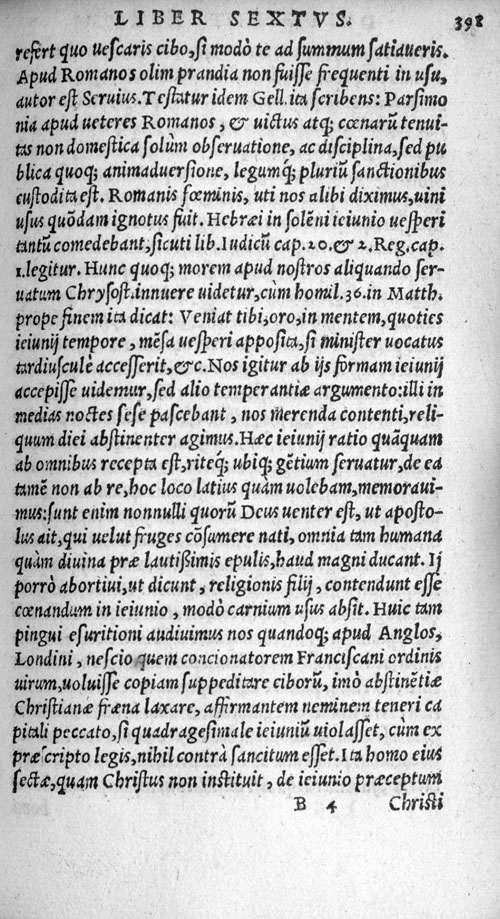 LIBER SEXTVS. 398
refert quo uescaris cibo, si modò te ad summum satiaueris.
Apud Romanos olim prandia non fuisse frequenti in usu,
autor est Seruius. Testatur idem Gell. ita scribens: Parsimo
nia apud ueteres Romanos, & uictus atq; cœnarũ tenui-
tas non domestica solùm obseruatione, ac disciplina, sed pu
blica quoq; animaduersione, legumq́; pluriũ sanctionibus
custodita est. Romanis fœminis, uti nos alibi diximus, uini
usus quõdam ignotus fuit. Hebræi in solẽni ieiunio uesperi
tantũ comedebant, sicuti lib. Iudicũ cap. 20. & 2. Reg. cap.
1. legitur. Hunc quoq; morem apud nostros aliquando ser-
uatum Chrysost. innuere uidetur, cùm homil. 36. in Matth.
prope finem ita dicat: Veniat tibi, oro, in mentem, quoties
ieiunij tempore, mẽsa uesperi apposita, si minister uocatus
tardiusculè accesserit, &c. Nos igitur ab ijs formam ieiunij
accepisse uidemur, sed alio temperantiæ argumento: illi in
medias noctes sese pascebant, nos merenda contenti, reli-
quum diei abstinenter agimus. Hæc ieiunij ratio quãquam
ab omnibus recepta est, riteq́; ubiq; gẽtium seruatur, de ea
tamẽ non ab re, hoc loco latius quàm uolebam, memoraui-
mus: sunt enim nonnulli quorũ Deus uenter est, ut aposto-
lus ait, qui uelut fruges cõsumere nati, omnia tam humana
quàm diuina præ lautißimis epulis, haud magni ducant. Ij
porrò abortiui, ut dicunt, religionis filij, contendunt esse
cœnandum in ieiunio, modò carnium usus absit. Huic tam
pingui esuritioni audiuimus nos quandoq; apud Anglos,
Londini, nescio quem concionatorem Franciscani ordinis
uirum, uoluisse copiam suppeditare ciborũ, imò abstinẽtiæ
Christianæ fræna laxare, affirmantem neminem teneri ca
pitali peccato, si quadragesimale ieiuniũ uiolasset, cùm ex
præscripto legis, nihil contrà sancitum esset. Ita homo eius
sectæ, quam Christus non instituit, de ieiunio præceptum
B 4 Christi